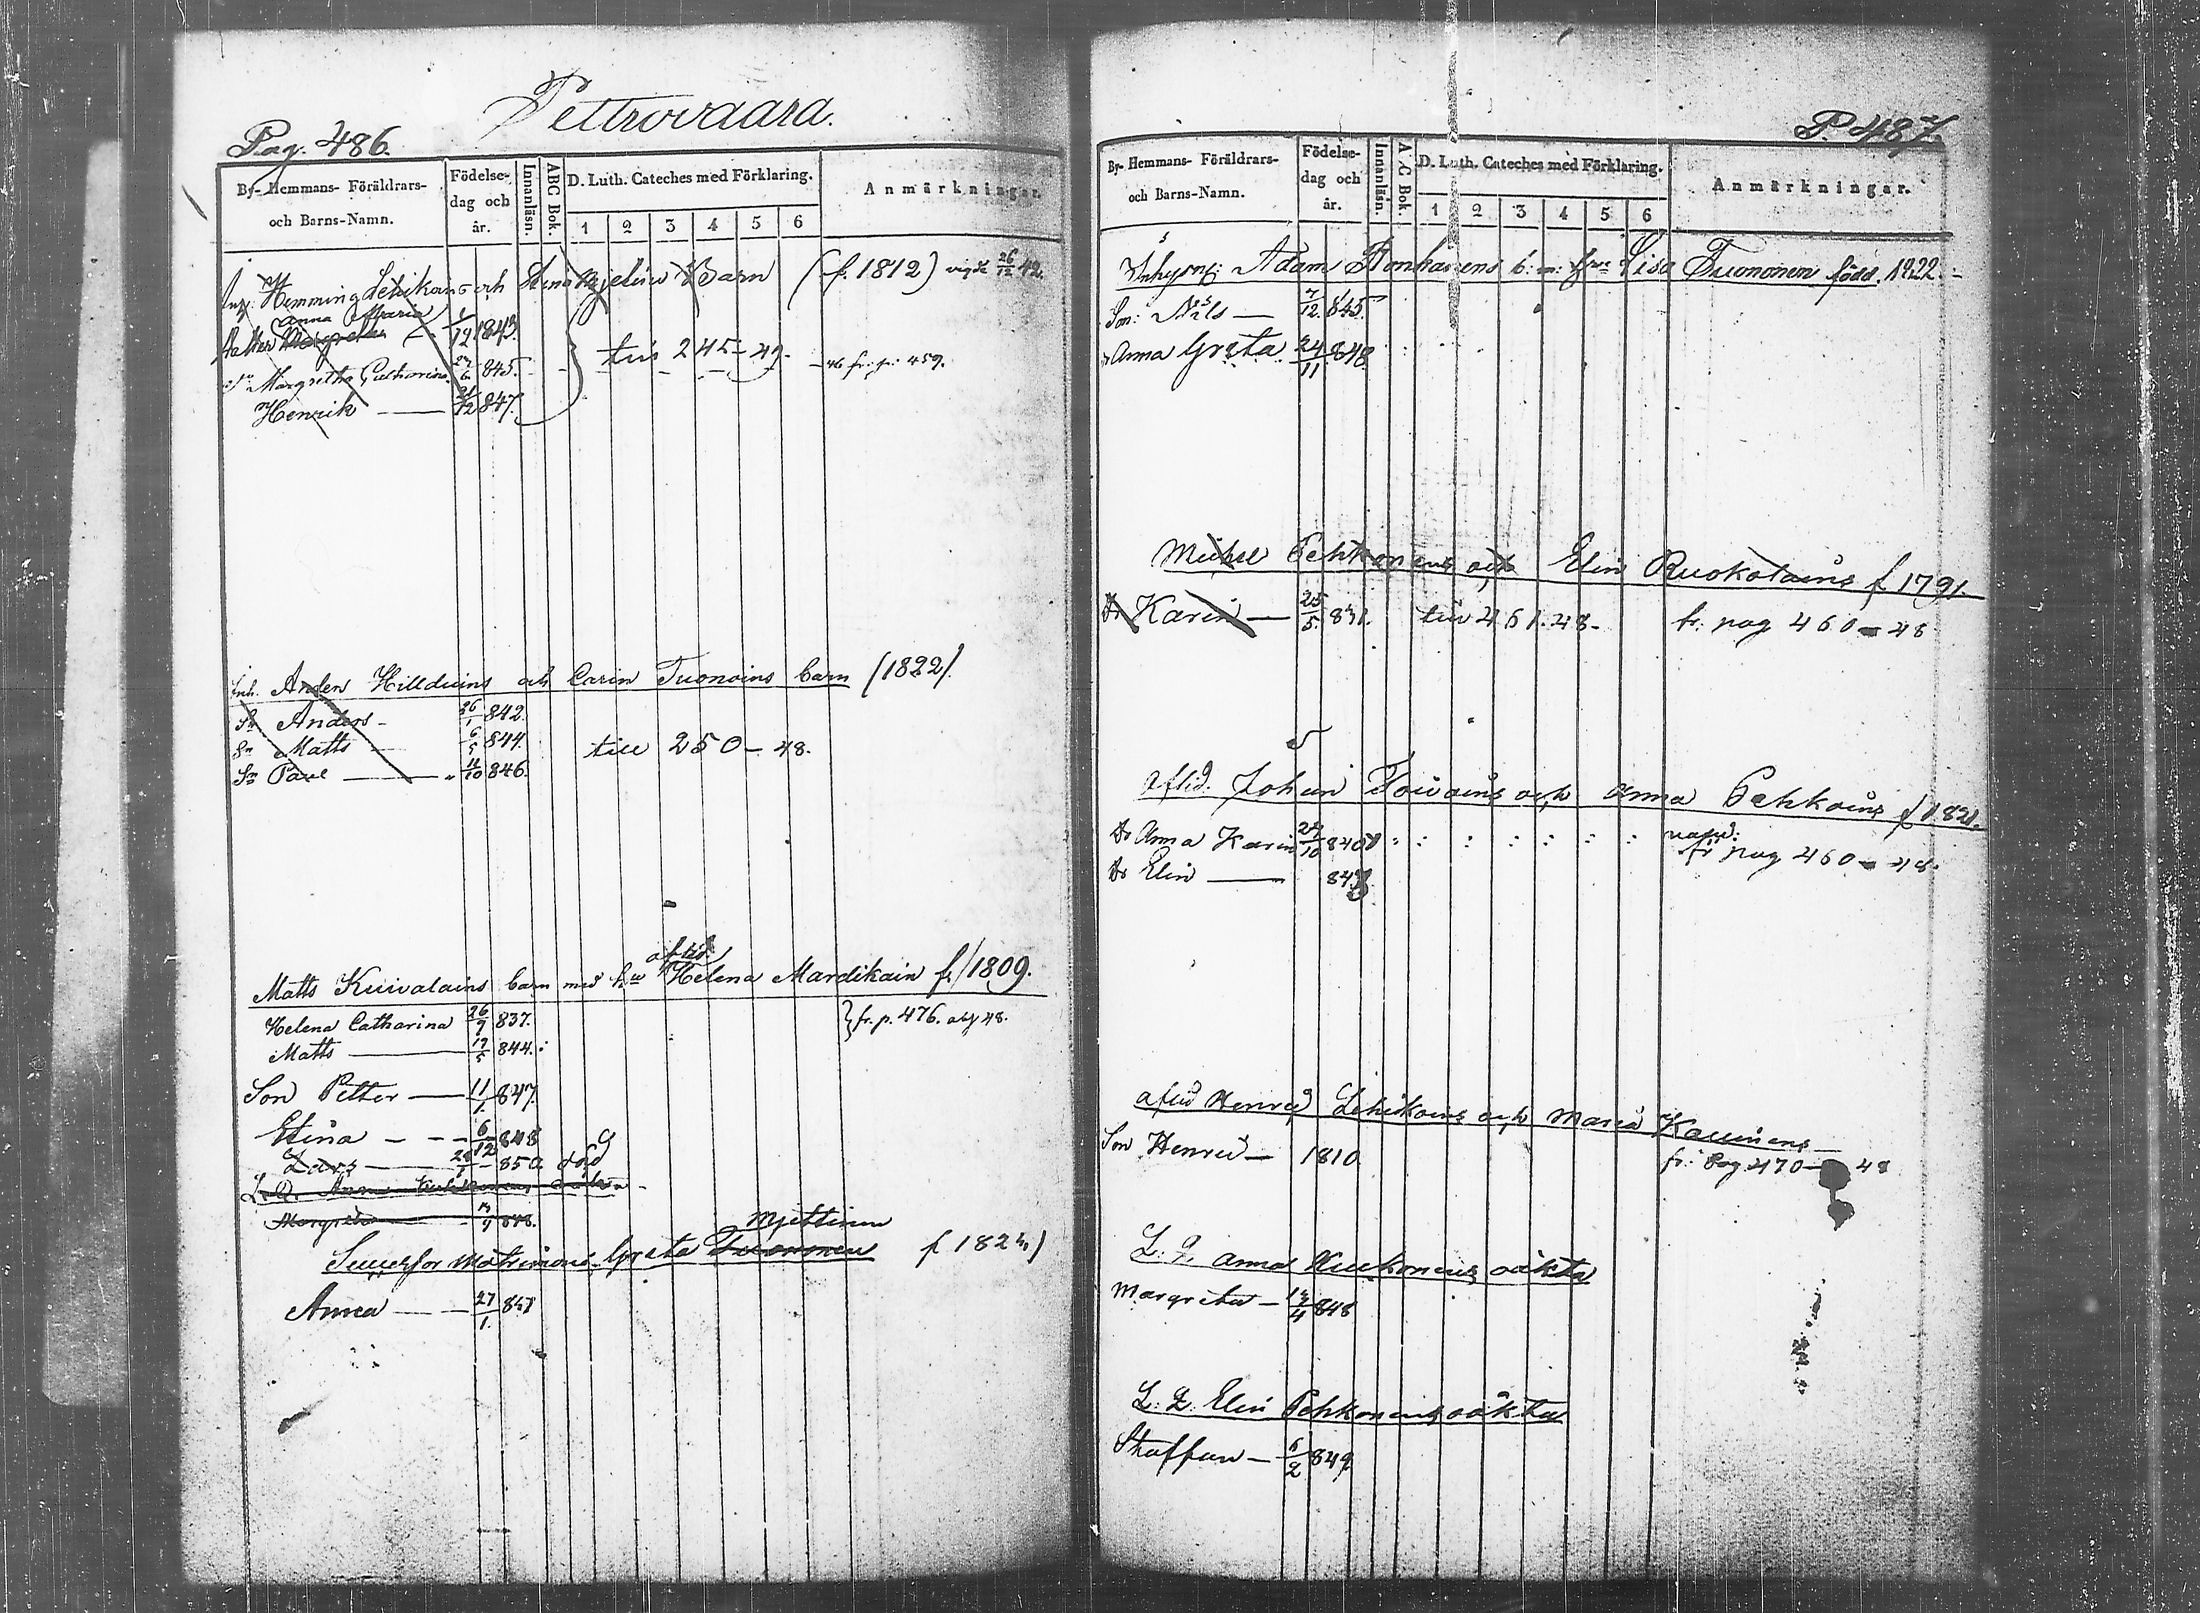 Pettrovaara.
Pag. 486.
By- Hemmans- Föräldrars- och Barns-Namn.
Födelse- dag och år.
Innanläsn.
ABC Bok.
D. Luth. Cateches med Förklaring.
1 2 3 4 5 6
Anmärkningar.
Hemming och Stina Barn (f. 1812) 26/12 42.
Anna Maria
1/12 1843.
till 245-49.
Margretha Catharina 6 845. 46 fr. p: 459.
Henrik 12 847.
Inh. Anders Hillduins och Carin Tuonoins barn (1822).
Sn Anders - 26/1 842.
Sn Matts - 6/5 844. till 250-48.
Sn Paul 11/10 846.
aflid.
Matts Kuivalains barn med hu Helena Mardikain f./1809.
Helena Catharina 26/9 837. } fr. p. 476. 48.
Matts 17/5 844.
Son Petter 11/1. 847.
Stina - - - 6/12 848
Lars 850 död
L. Q. Anna oäkta
Margreta 848.
Mjettinen
Greta Tuononen f 182
Anna 27/1. 847
P. 487.
By- Hemmans- Föräldrars- och Barns-Namn.
Födelse- dag och år.
Innanläsn.
A.C Bok.
D. Luth. Cateches med Förklaring.
1 2 3 4 5 6
Anmärkningar.
Inhysng: Adam Ronkanens b: m: Lisa Tuononen född. 1822.
Son: Nils 7/12. 845.
Anna Greta 24/11 848
Michel Pehkonens och Elin Ruokolains f 1791.
Dr Karin 25/5. 831. till 461.48- fr. pag 460-48
aflid. Johan Toivains och Anna Pehkoins f 182.
Dr Anna Karin 10 840 fr pag 460-48.
Dr Elin 84
aflid Henric Lehikoins och Maria Kauinens
Son Henric 1810 fr: Pag 470- 48
L: Q. Anna Kuckonens oäkta
Margreta 4 848
L: Q: Elin Pehkonens oäkta
Staffan 6/2 849